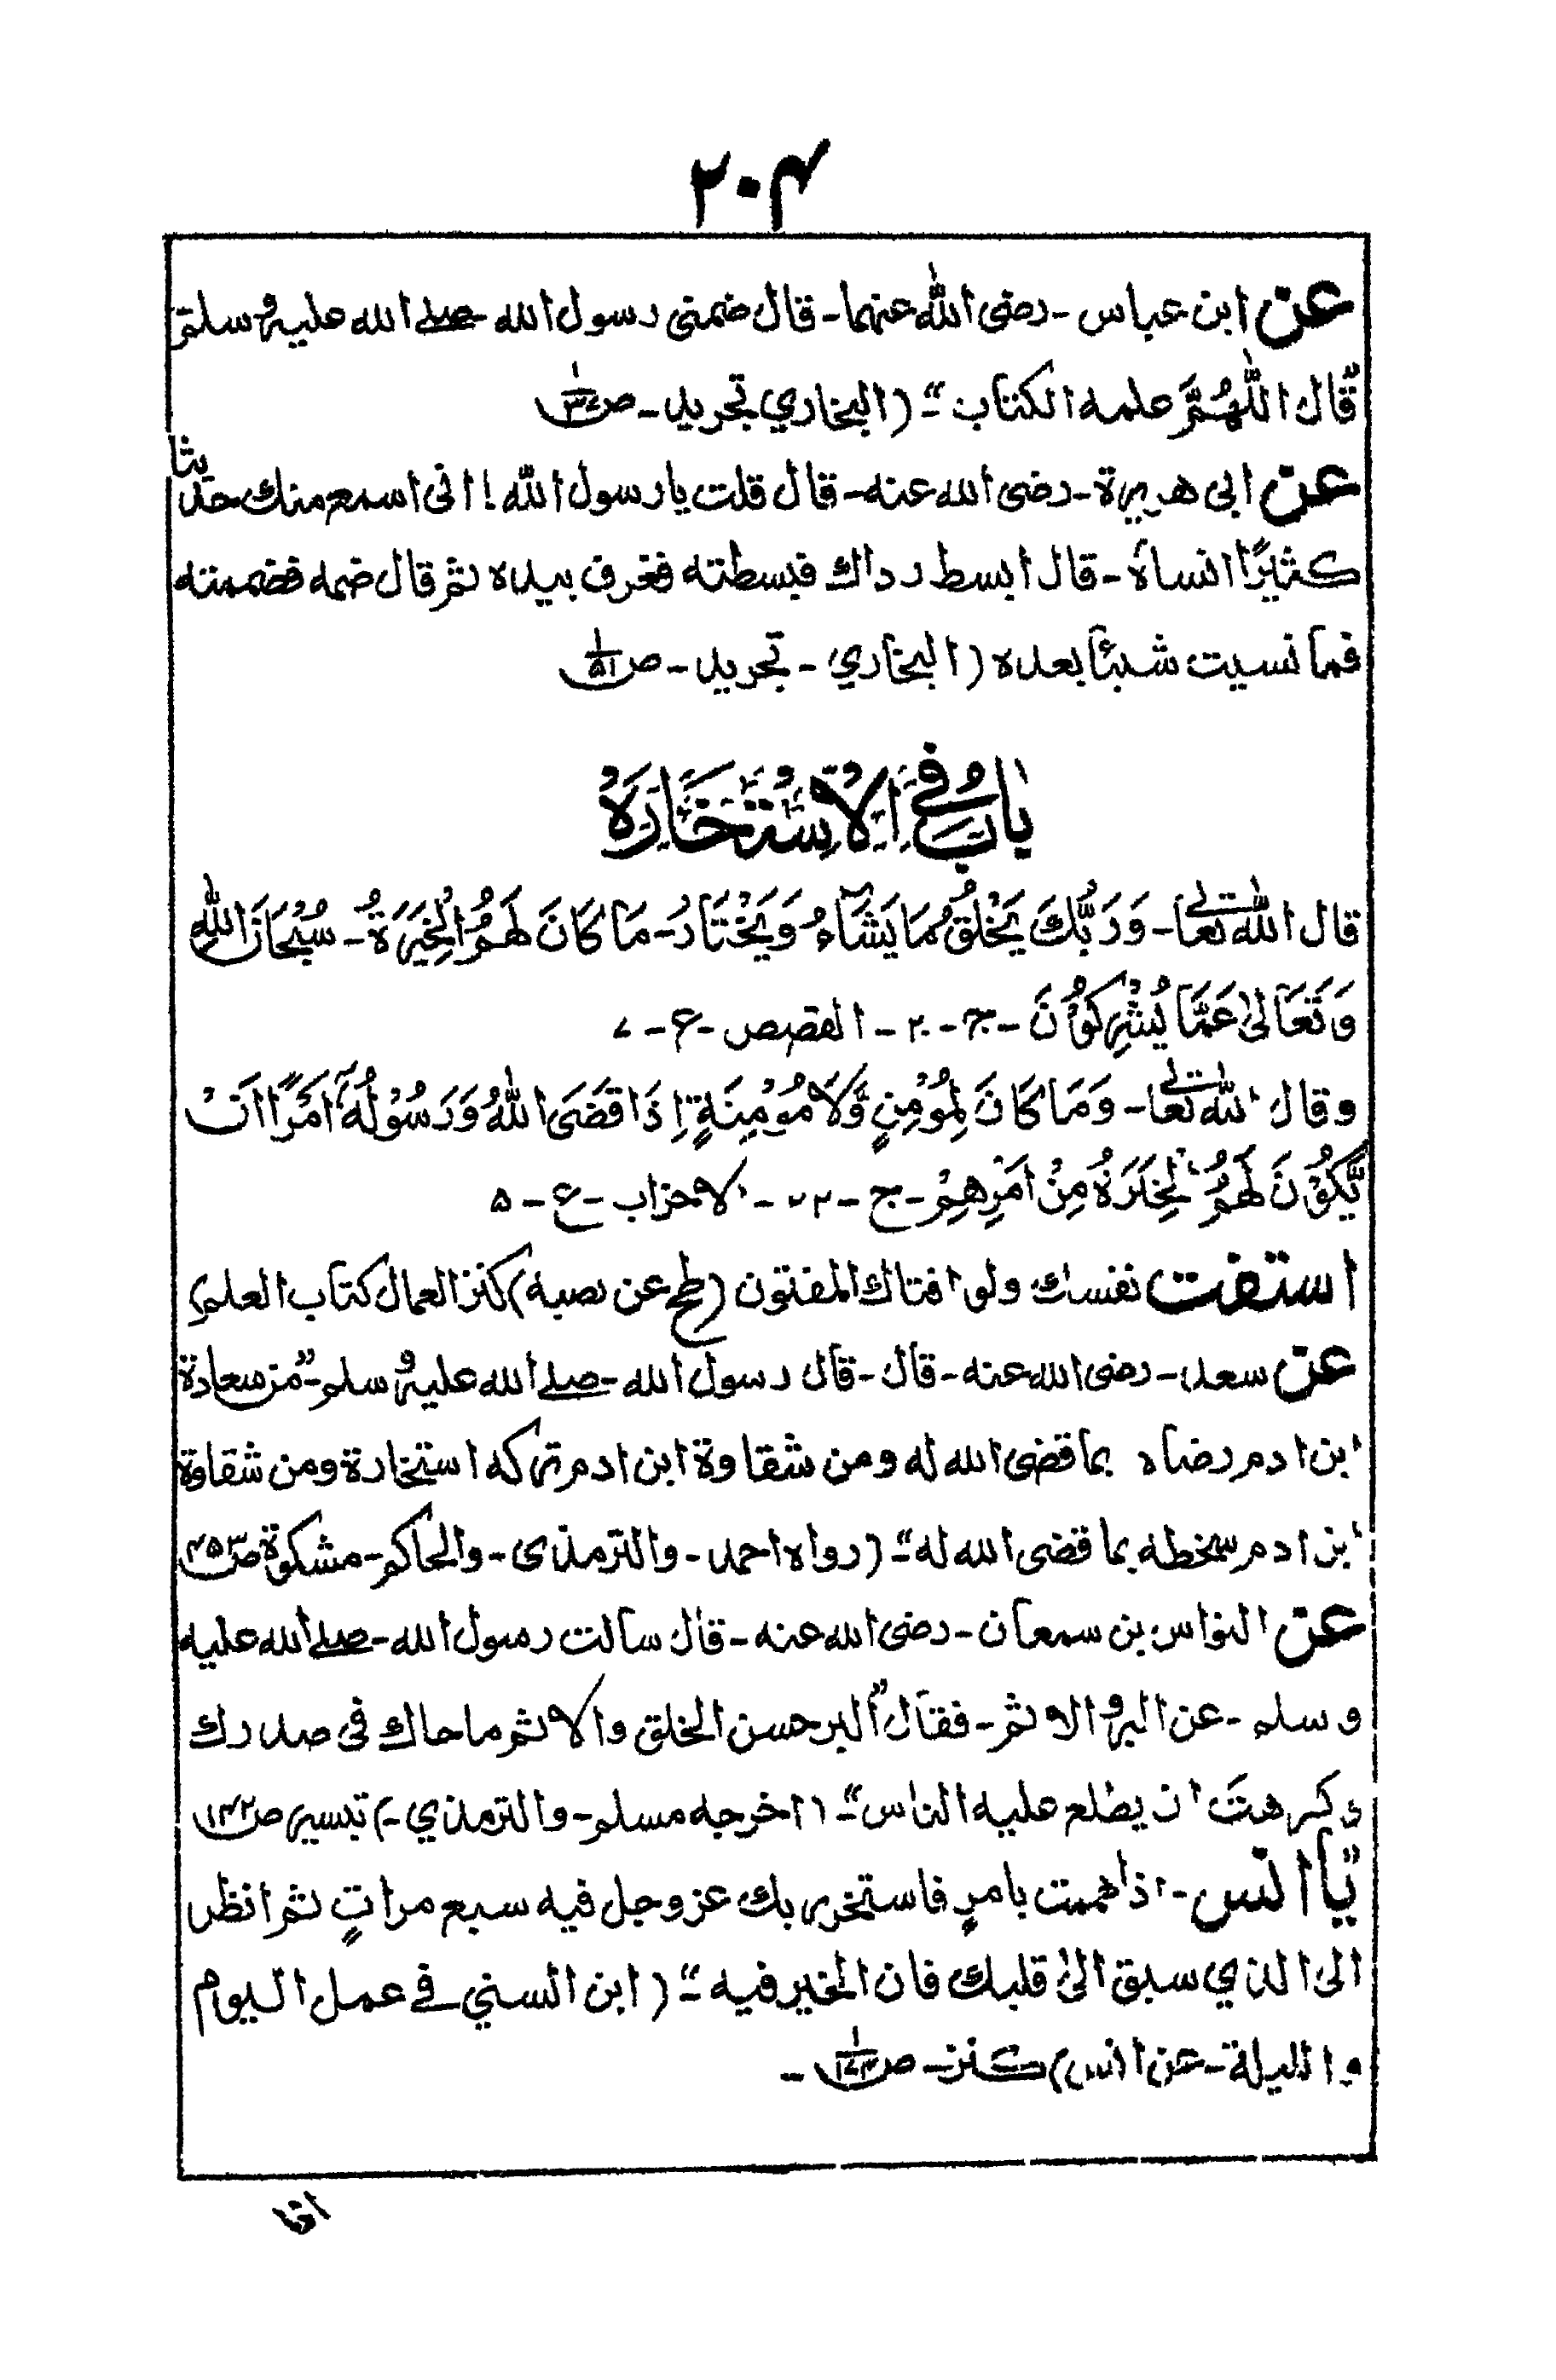 ۲۰۴
عن ابن عباس - رضی الله عنهما - قال ضمنی رسول الله صلے الله علیه و سلم
قال اللّٰهُمَّ علمه الکتاب" - (البخاري تجرید - ص
عن ابی هریرة - رضی الله عنه - قال قلت یا رسول اللّٰه! انی اسمع منك حدیثا
کثیرًا انساہ - قال ابسط رداك فبسطته فغرف بیده ثم قال ضمه فضممته
فما نسیت شیئًا بعده (البخاري - تجرید - ص ۱/۵۱
بَابُ فِے الْاِسْتَخَارَهْ
قال اللّٰه تعالےٰ - وَرَبُّكَ یَخْلُقُ مَا یَشَآءُ وَیَخْتَارُ - مَا کَانَ لَهُمُ الْخِیَرَةُ - سُبْحَانَ اللّٰهِ
وَتَعَالیٰ عَمَّا یُشْرِکُوْنَ - ج - ۲۰ - القصص - ع - ۷
وقال اللّٰه تعالےٰ - وَمَا کَانَ لِمُؤْمِنٍ وَّلَا مُؤْمِنَةٍ اِذَا قَضَی اللّٰهُ وَرَسُوْلُهٗ اَمْرًا اَنْ
یَّکُوْنَ لَهُمُ الْخِیَرَةُ مِنْ اَمْرِهِمْ - ج - ۲۲ - الاحزاب - ع - ۵
استفت نفسك ولو افتاك المفتون (طح عن وصبة) کنز العمال کتاب العلم
عن سعد - رضی الله عنه - قال - قال رسول الله - صلے الله علیه و سلم - "من سعادة
ابن ادم رضاه بما قضی الله له ومن شقاوة ابن ادم ترکه استخارة ومن شقاوة
ابن ادم سخطه بما قضی الله له" - (رواه احمد - والترمذی - والحاکم - مشکوة ص ۴۵۳
عن النواس بن سمعان - رضی الله عنه - قال سالت رسول الله - صلے الله علیه
وسلم - عن البر و الاثم - فقال "البر حسن الخلق والاثم ما حاك فی صدرك
وکرهتَ ان یطلع علیه الناس" - (اخرجه مسلم - والترمذي -) تیسیر ص ۱۴۲
"یا انس - اذا هممت بامرٍ فاستخر ربك عزوجل فیه سبع مراتٍ ثم انظر
الی الذي سبق الیٰ قلبك فان الخیر فیه" - (ابن السني فے عمل الیوم
واللیلة - عن انس) کنز - ص -